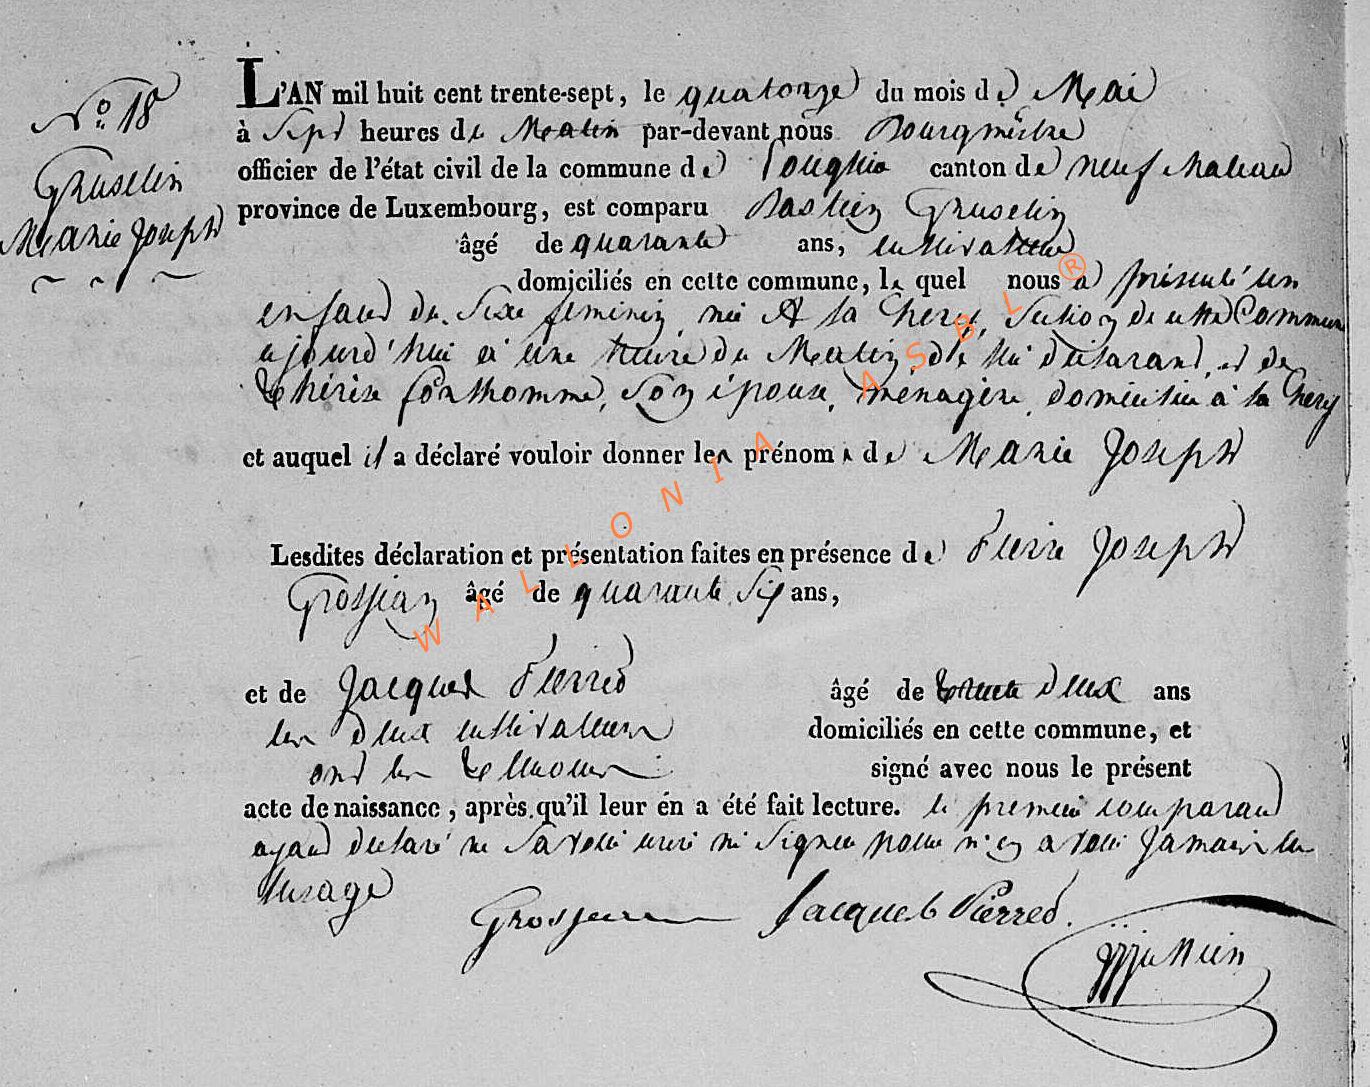 N° 18
Gruselin
Marie Joseph
L'AN mil huit cent trente-sept, le quatorze du mois de Mai
à Sept heures du Matin par-devant nous Bourgmestre
officier de l'état civil de la commune de canton de neufchateau
province de Luxembourg, est comparu Bastien Gruselin
âgé de quarante ans, cultivateur
domiciliés en cette commune, le quel nous a présenté un
enfant du Sexe feminin, née A la Chery, Section de cette Commune
ajourd'hui à une heure du Matin, de lui déclarant, et de
Thérèse Son épouse, ménagère, domiciliée à la Chery
et auquel il a déclaré vouloir donner les prénoms de Marie Joseph
Lesdites déclaration et présentation faites en présence de Pierre Joseph
Grosjean âgé de quarante Six ans,
et de Jacques Pierred âgé de trente deux ans
les deux cultivateurs domiciliés en cette commune, et
ont les témoins signé avec nous le présent
acte de naissance, après qu'il leur en a été fait lecture. le premier comparant
ayant déclaré ne Savoir ecrire ni Signer pour n'en avoir Jamais eu
l'usage
Grosjean Jacques Pierred.
WALLONIA ASBL ®